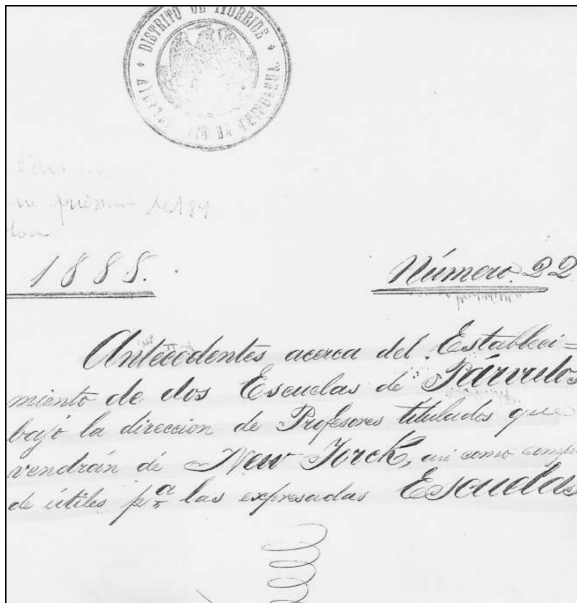 DISTRITO DE ITURBIDE
1885.
Número. 22
Antecedentes acerca del Estableci=
miento de dos Escuelas de Párvulos
bajo la direccion de Profesores titulados que
vendrán de New Jorck, asi como compra
de útiles pª las expresadas Escuelas